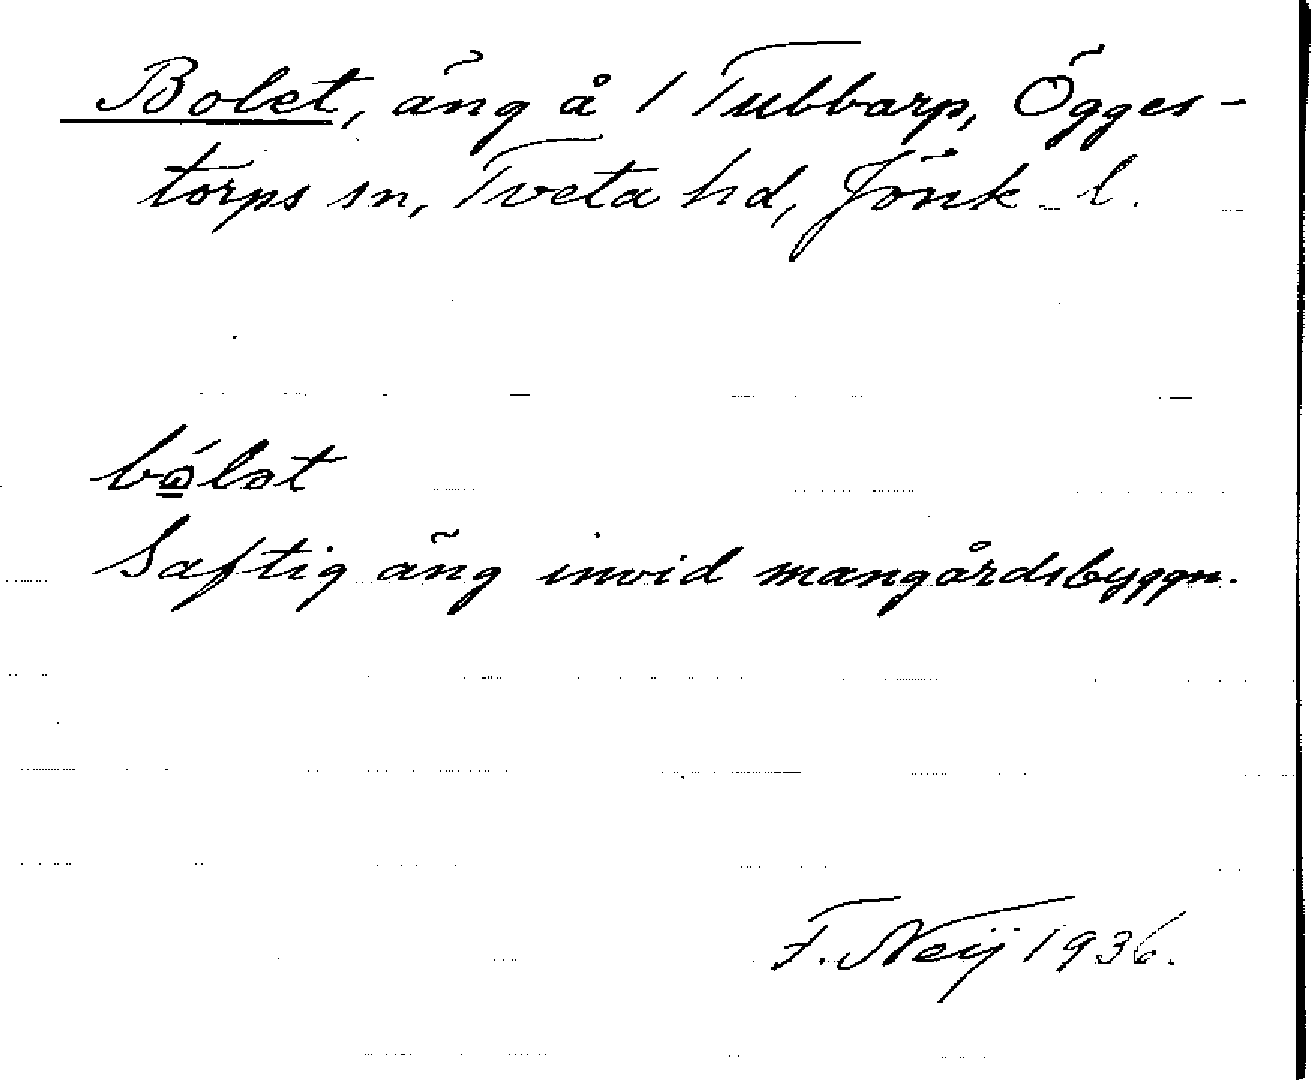 Bolet, äng å 1 Tubbarp, Ögges-
torps sn, Tveta hd, Jönk. l.
Saftig äng invid mangårdsbyggn.
F. Neij 1936.